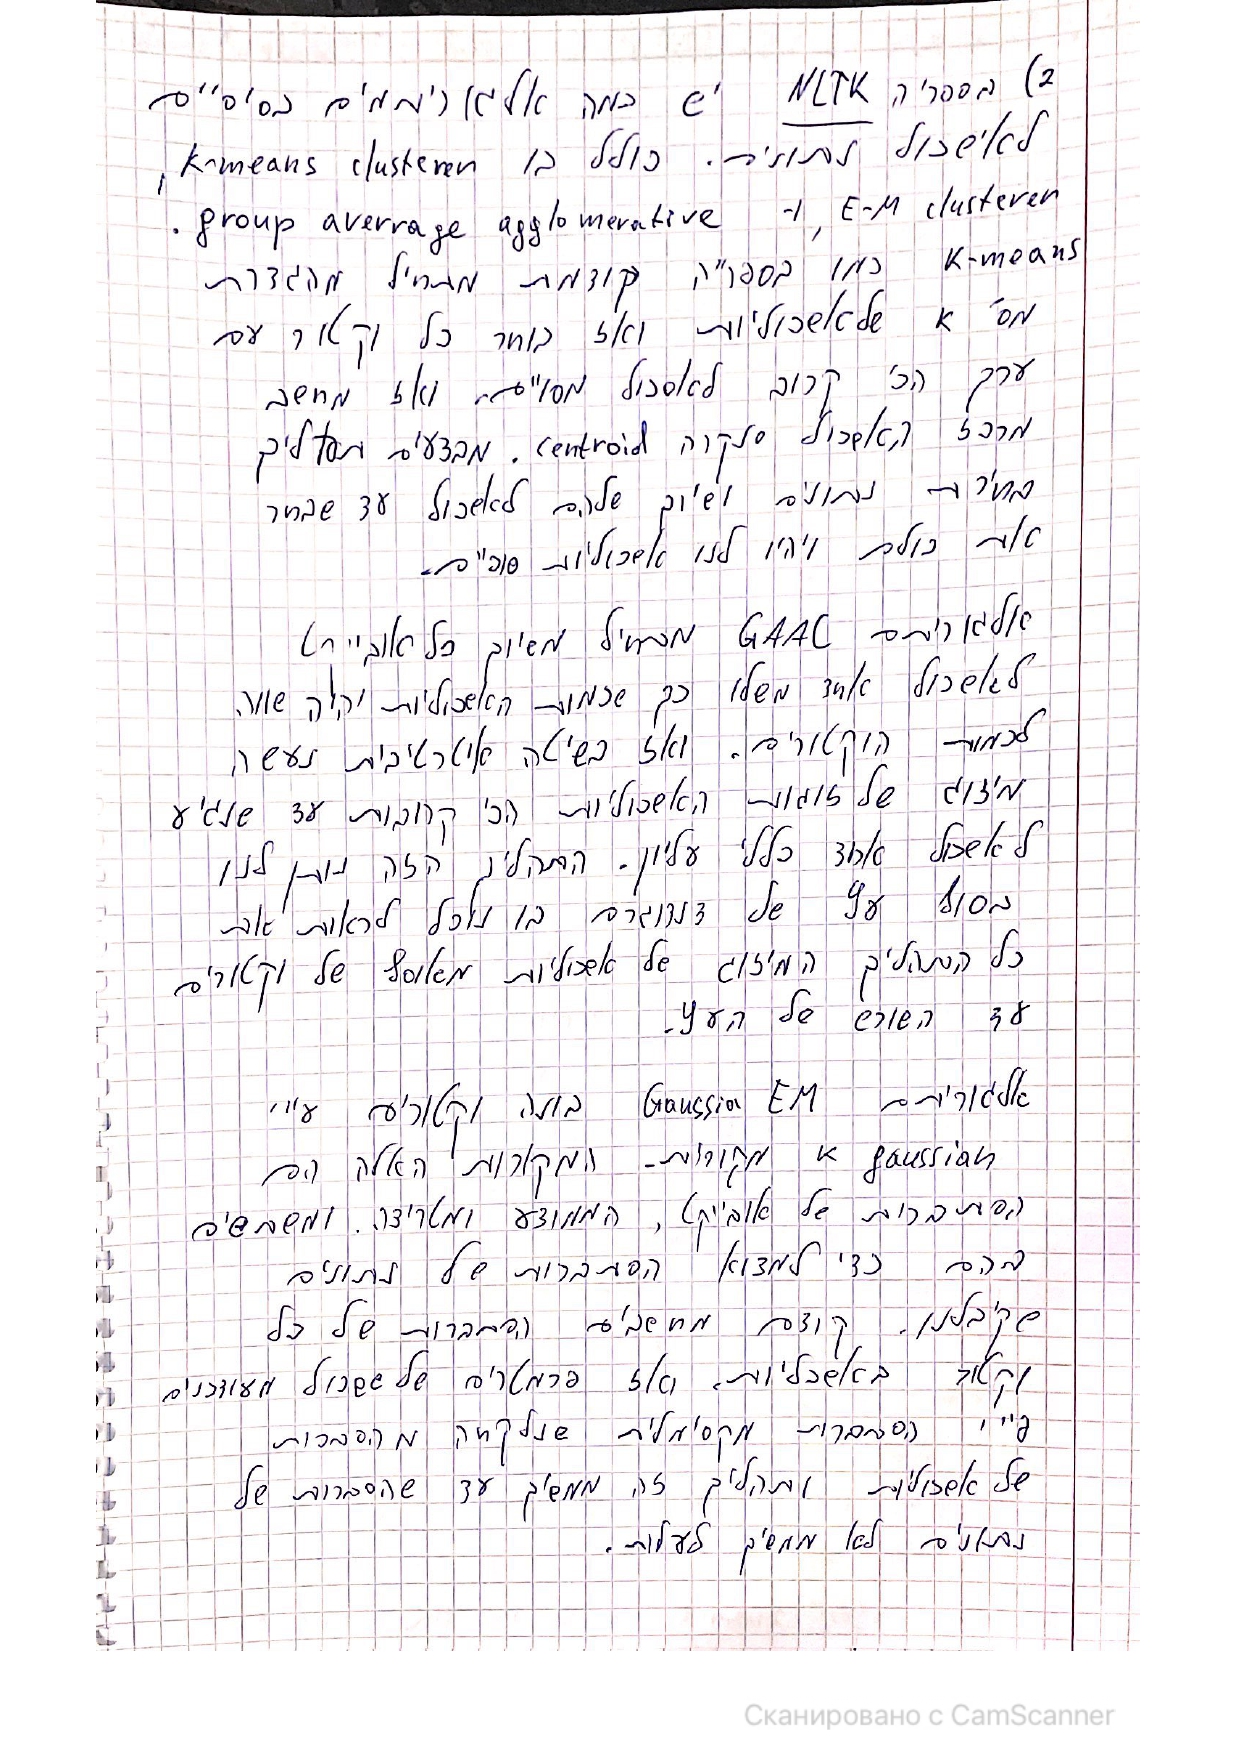 2) בספריה NLTK יש כמה אלגוריתמים בסיסיים
לאישכול נתונים. כולל בו K-means clusteren,
E-M clusteren, ו- group averrage agglomerative.
K-means כמו בספר"ה קודמת מתחיל מהגדרת
מס' א של אשכוליות ואז בוחר כל וקטור עם
ערך הכי קרוב לאסכול מסו"ם. ואז מחשב
מרכז האשכול סנקרה centroid. מבצעים תהליך
בחירת נתונים ושיוך שלהם לאשכול עד שבחר
את כולם ויהיו לנו אשכוליות סופ"ם.
אלגוריתם GAAC מתחיל משיוך כל אובייקט
לאשכול אחד משלו כך שכמות האשכוליות יהיה שווה
לכמות הוקטורים. ואז בשיטה איטרטיבית נעשה
מיזוג של זוגות האשכוליות הכי קרובות עד שנגיע
לאשכול אחד כללי עליון. התהליך הזה נותן לנו
בסוף עץ של דנדוגרם בו נוכל לראות את
כל התהליך המיזוג של אשכוליות מאוסף של וקטורים
עד השורש של העץ.
אלגוריתם Gaussian EM בונה וקטורים ע"י
gaussian א מקורות. המקורות האלה הם
הסתברות של אובייקט, הממוצע ומטריצה. ומשתמשים
בהם כדי למצוא הסתברות של נתונים
שקיבלנו. קודם מחשבים הסתברות של כל
וקטור באשכליות. ואז פרמטרים של אשכול מעודכנים
ע"י הסתברות מקסימלית שנלקחה מהסברות
של אשכוליות ותהליך זה ממשיך עד שהסברות של
נתונים לא ממשיך לעלות.
Сканировано с CamScanner